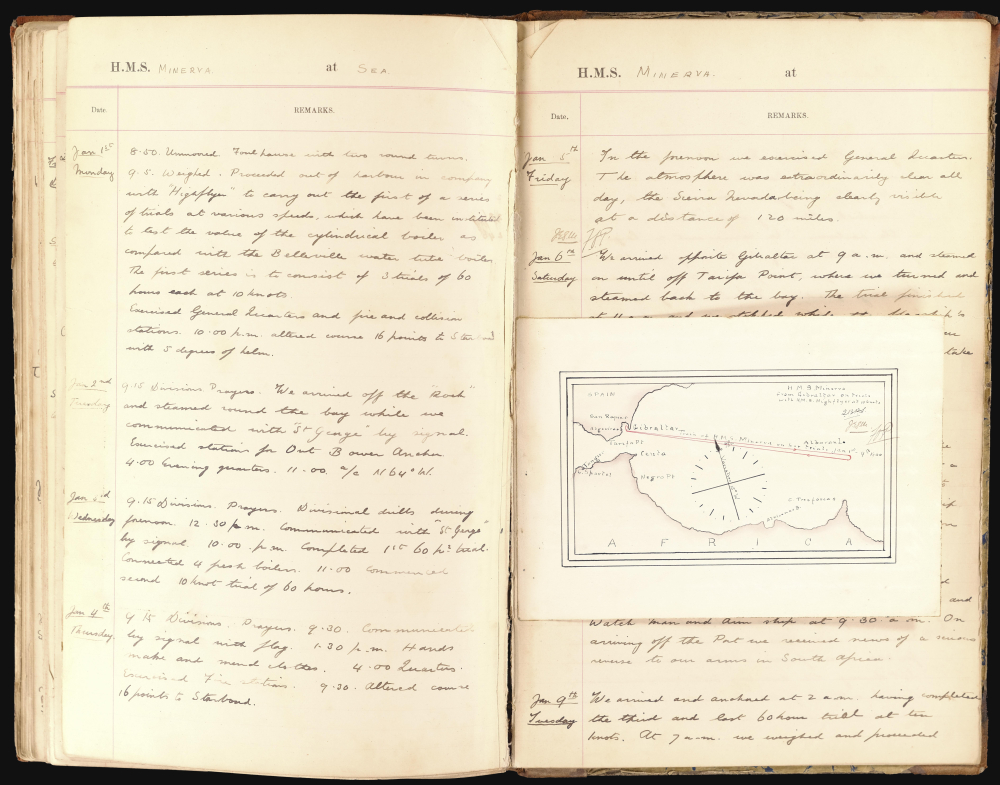 H.M.S. MINERVA at SEA.
Date. REMARKS.
Jan 1st
Monday
8.50. Unmoored. Foul hawse with two round turns.
9.5. Weighed. Proceeded out of harbour in company
with "Highflyer" to carry out the first of a series
of trials at various speeds, which have been instituted
to test the value of the cylindrical boiler as
compared with the Belleville water tube boiler
The first series is to consist of 3 trials of 60
hours each at 10 knots
Exercised General Quarters and fire and collision
stations. 10.00 p.m. altered course 16 points to Starboard
with 5 degrees of helm.
Jan 2nd
Tuesday
9.15 Divisions Prayers. We arrived off the "Rock"
and steamed round the bay while we
communicated with "St George" by signal.
Exercised stations for Out Bower Anchor
4.00 Evening quarters. 11.00. a/c N 64° W.
Jan 3rd
Wednesday
9.15 Divisions. Prayers. Divisional drills during
forenoon. 12.30 p.m. Communicated with "St George"
by signal. 10.00. p.m. Completed 1st 60 hrs trial.
Connected 4 fresh boilers. 11.00 Commenced
second 10 knot trial of 60 hours.
Jan 4th
Thursday
9.15 Divisions. Prayers. 9.30. Communicated
by signal with flag. 1.30 p.m. Hands
make and mend clothes. 4.00 Quarters.
Exercised Fire stations. 9.30. Altered course
16 points to Starboard.
H.M.S. MINERVA. at
Date. REMARKS.
Jan 5th
Friday
In the forenoon we exercised General Quarters.
The atmosphere was extraordinarily clear all
day, the Sierra Nevada being clearly visible
at a distance of 120 miles.
Jan 6th
Saturday
We arrived opposite Gibraltar at 9 a.m. and steamed
on until off Tarifa Point, where we turned and
steamed back to the bay. The trial finished
take
SPAIN
H.M.S. Minerva
From Gibraltar on trials
with H.M.S. Highflyer
San Roque
Algeciras
Gibraltar
Track of H.M.S. Minerva on her trials
Alboran I.
Tarifa Pt
Ceuta
Tangier
C. Spartel
Negro Pt
C. Tresforcas
AFRICA
and
Watch man and arm ship at 9.30 a.m. On
arriving off the Port we received news of a serious
reverse to our arms in South Africa.
Jan 9th
Tuesday
We arrived and anchored at 2 a.m. having completed
the third and last 60 hour trial at ten
knots. At 7 a.m. we weighed and proceeded